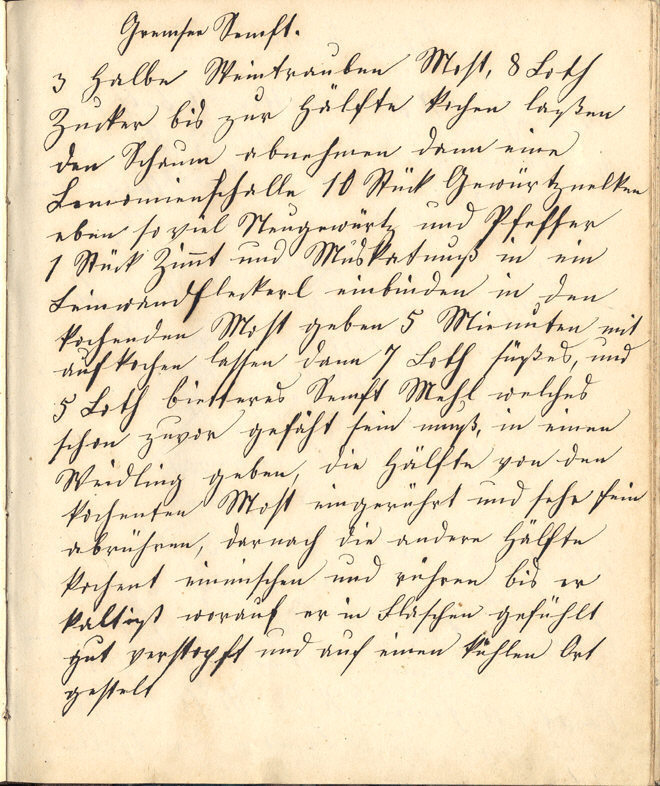 Gremser Senft.
3 Halbe Weintrauben Most, 8 Loth
Zucker bis zur Hälfte kochen laßen
den Schaum abnehmen dann eine
Lemomienschalle 10 Stück Gewürtznelken
eben so viel Neugewürtz und Pfeffer
1 Stück Zimmt und Muskatnuß in ein
Leinwandfleckerl einbinden in den
kochenden Most geben 5 Mienuten mit
aufkochen lassen dann 7 Loth süßes, und
5 Loth bietteres Senft Mehl welches
schon zuvor gesäht sein muß, in einen
Weidling geben, die Hälfte von den
kochenten Most eingerührt und sehr fein
abrühren, darnach die andere Hälfte
kochent einmischen und rühren bis er
kalt ist worauf er in Flaschen gefühlt
gut verstopft und auf einen kühlen Ort
gestelt